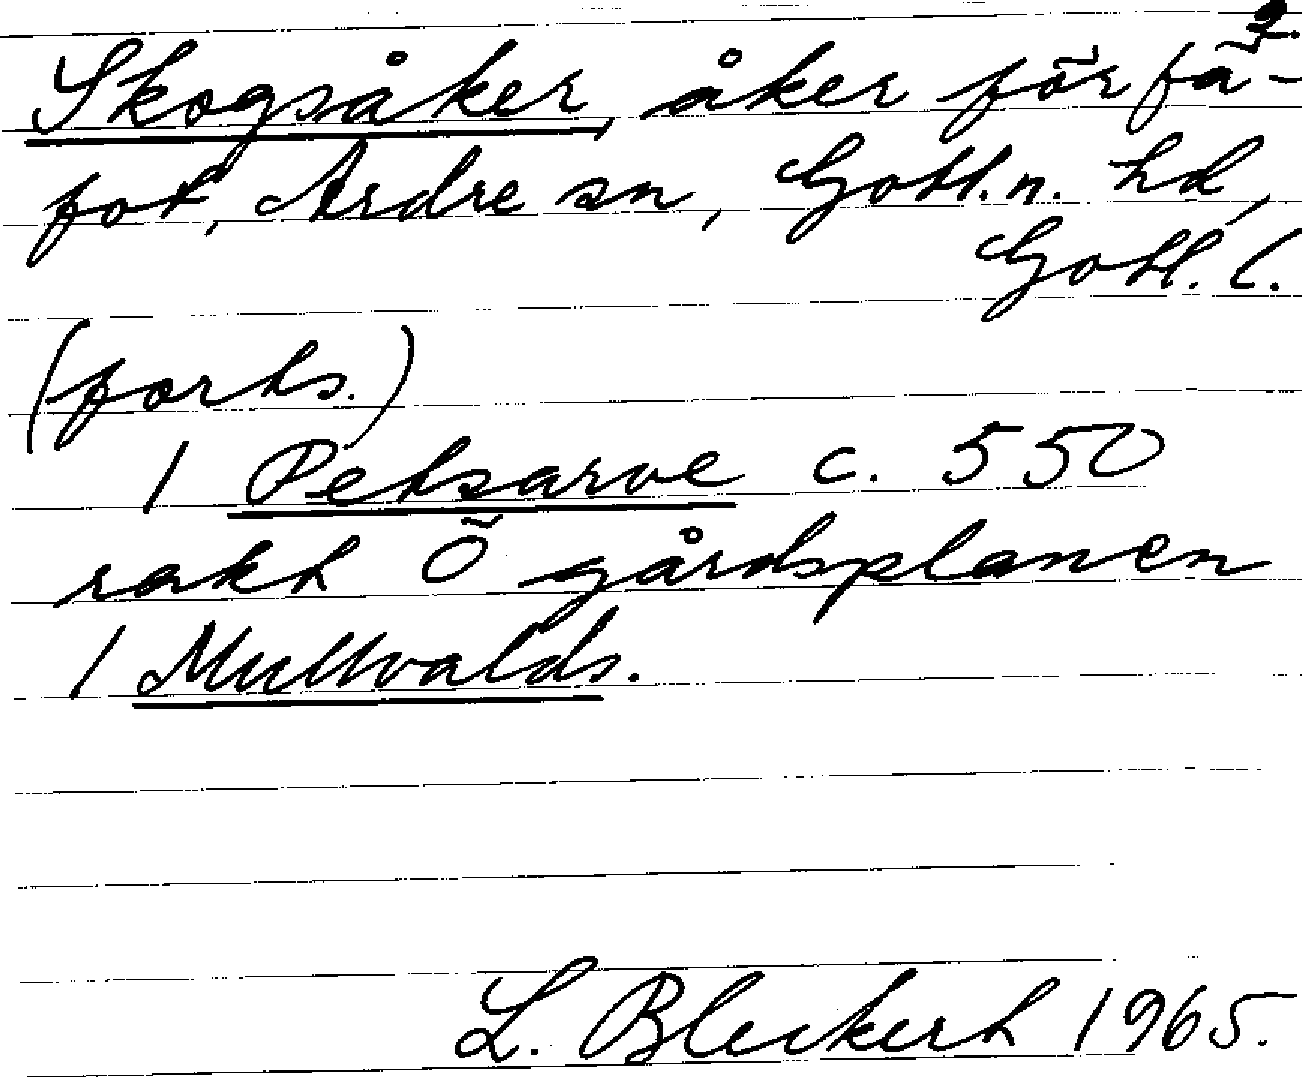 2.
Skogsåker, åker för få-
fot, Ardre sn, Gotl. n. hd,
Gotl. l.
(forts.)
1 Petsarve c. 550
rakt Ö gårdsplanen
1 Mullvalds.
L. Bleckert 1965.